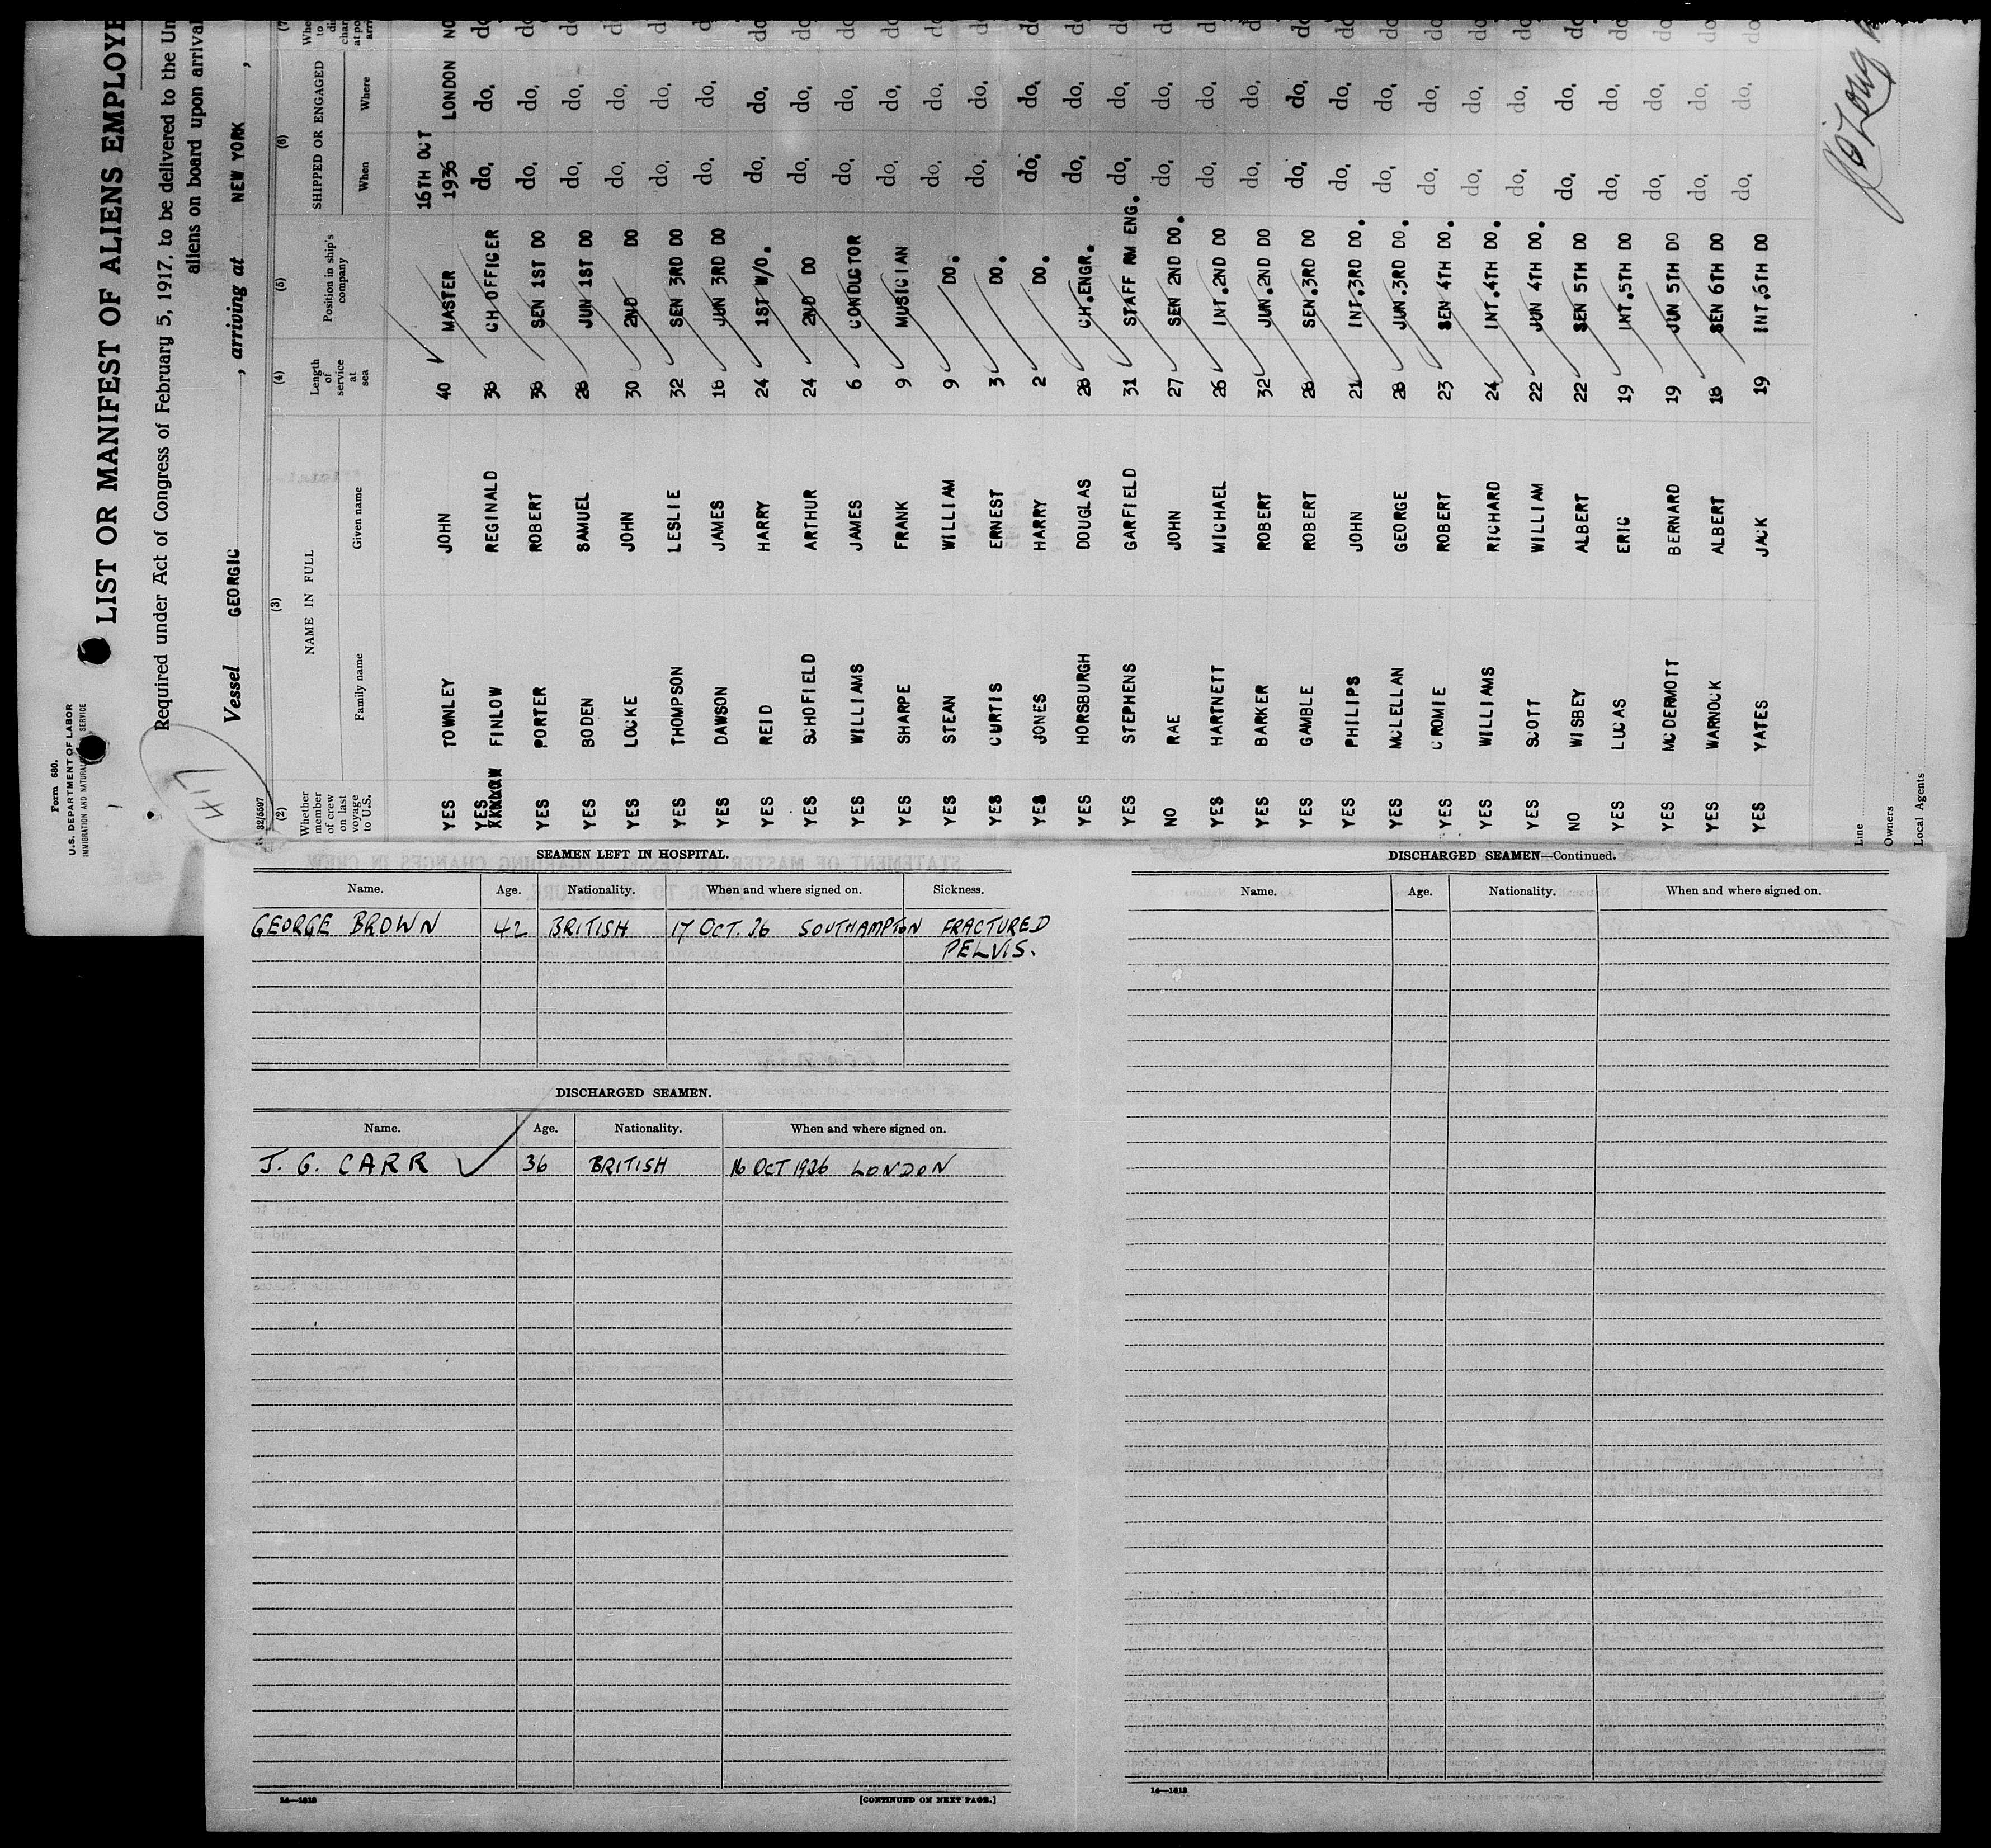 Form 680.
U.S. DEPARTMENT OF LABOR
IMMIGRATION AND SERVICE
LIST OR MANIFEST OF ALIENS
Required under Act of Congress of February 5, 1917, to be delivered to the
aliens on board upon arrival
Vessel GEORGIC , arriving at NEW YORK ,
417
32/5597
(2) (3) (4) (5) (6)
Whether member of crew on last voyage to U.S. NAME IN FULL Family name Given name Length of service at sea Position in ship's company SHIPPED OR ENGAGED When Where
16TH OCT
YES TOWNLEY JOHN 40 MASTER 1936 LONDON NO
YES FINLOW REGINALD 36 CH.OFFICER do. do. do.
YES PORTER ROBERT 36 SEN 1ST DO do. do. do.
YES BODEN SAMUEL 26 JUN 1ST DO do. do. do.
YES LOCKE JOHN 30 2ND DO do. do. do.
YES THOMPSON LESLIE 32 SEN 3RD DO do. do. do.
YES DAWSON JAMES 16 JUN 3RD DO do. do. do.
YES REID HARRY 24 1ST W/O. do. do. do.
YES SCHOFIELD ARTHUR 24 2ND DO do. do. do.
YES WILLIAMS JAMES 6 CONDUCTOR do. do. do.
YES SHARPE FRANK 9 MUSICIAN do. do. do.
YES STEAN WILLIAM 9 DO. do. do. do.
YES CURTIS ERNEST 3 DO. do. do. do.
YES JONES HARRY 2 DO. do. do. do.
YES HORSBURGH DOUGLAS 28 CH.ENGR. do. do. do.
YES STEPHENS GARFIELD 31 STAFF RM ENG. do. do. do.
NO RAE JOHN 27 SEN 2ND DO. do. do. do.
YES HARTNETT MICHAEL 26 INT.2ND DO do. do. do.
YES BARKER ROBERT 32 JUN.2ND DO do. do. do.
YES GAMBLE ROBERT 28 SEN.3RD DO do. do. do.
YES PHILIPS JOHN 21 INT.3RD DO. do. do. do.
YES MCLELLAN GEORGE 28 JUN.3RD DO. do. do. do.
YES CROMIE ROBERT 23 SEN 4TH DO. do. do. do.
YES WILLIAMS RICHARD 24 INT.4TH DO. do. do. do.
YES SCOTT WILLIAM 22 JUN 4TH DO. do. do. do.
NO WISBEY ALBERT 22 SEN 5TH DO do. do. do.
YES LUCAS ERIC 19 INT.5TH DO do. do. do.
YES MCDERMOTT BERNARD 19 JUN 5TH DO do. do. do.
YES WARNOCK ALBERT 18 SEN 6TH DO do. do. do.
YES YATES JACK 19 INT.6TH DO do. do. do.
Line
Owners
Local Agents
SEAMEN LEFT IN HOSPITAL.
Name. Age. Nationality. When and where signed on. Sickness.
GEORGE BROWN 42 BRITISH 17 OCT. 36 SOUTHAMPTON FRACTURED
PELVIS.
DISCHARGED SEAMEN.
Name. Age. Nationality. When and where signed on.
J. G. CARR 36 BRITISH 16 OCT 1936 LONDON
14—1613
[CONTINUED ON NEXT PAGE.]
DISCHARGED SEAMEN—Continued.
Name. Age. Nationality. When and where signed on.
14—1613